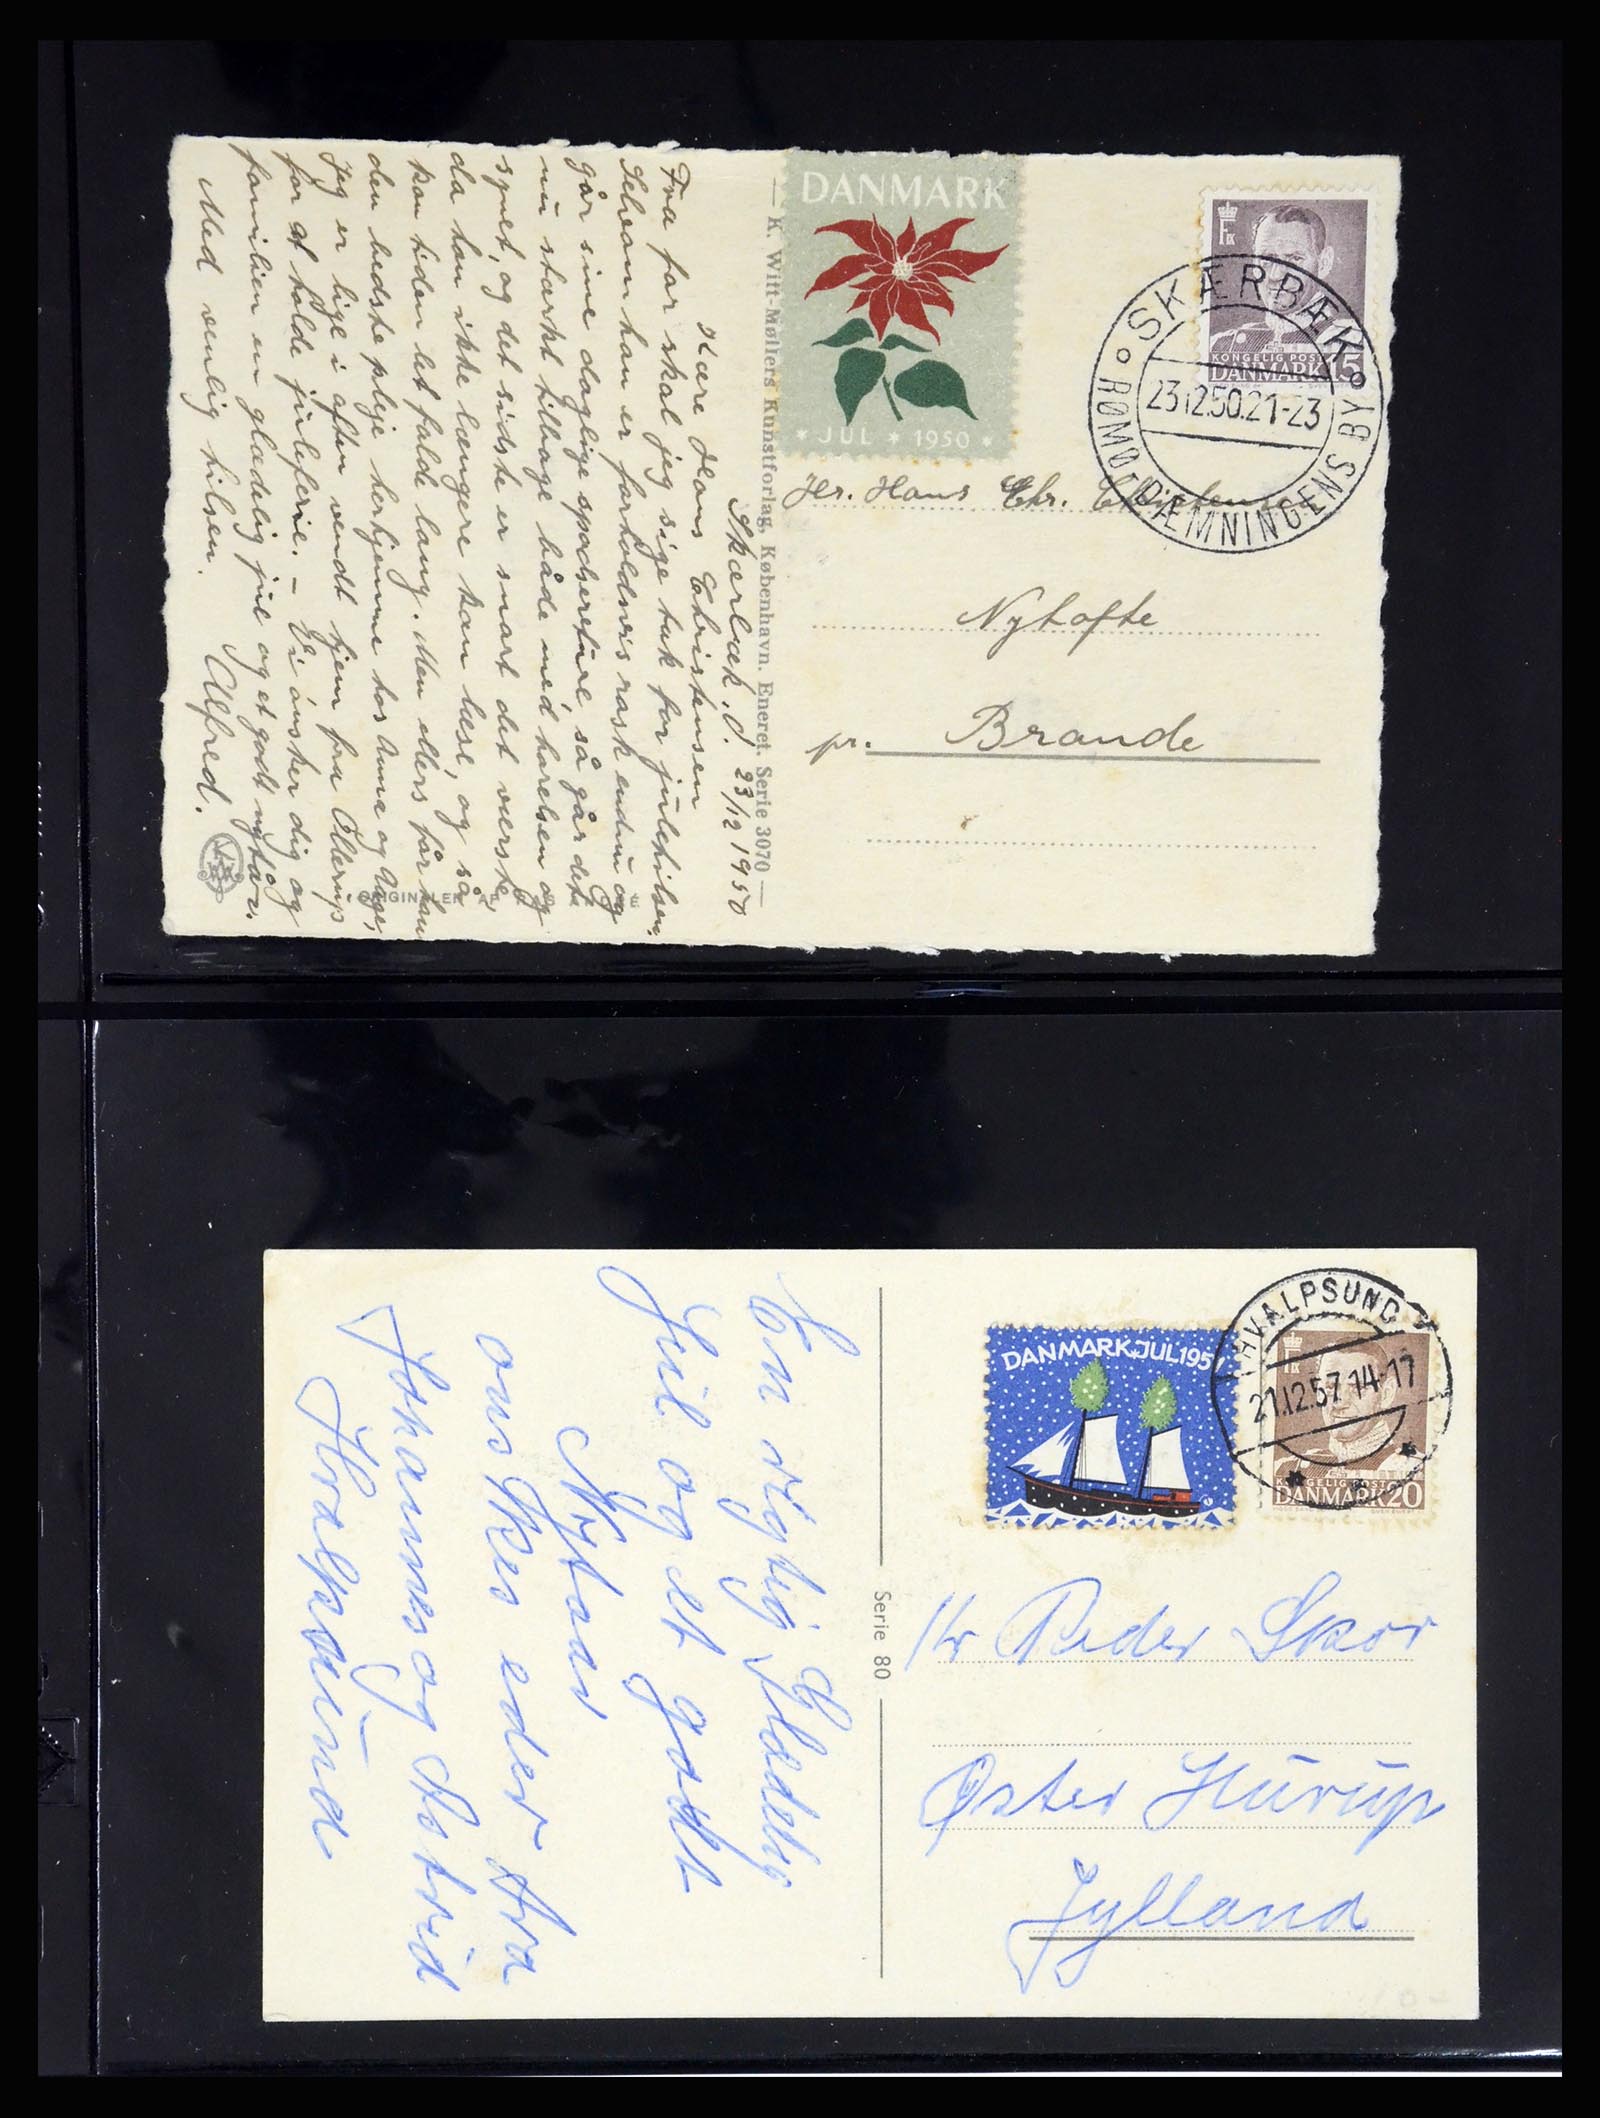 Skærbæk, d. 23/12 1950
Kære Hans Christensen
Fra far skal jeg sige tak for julehilsen.
Selvom han er forholdsvis rask endnu og
går sine daglige spadsereture så går det
nu stærkt tilbage både med hørelsen og
synet, og det sidste er snart det værste,
da han ikke længere kan læse, og så
kan tiden let falde lang. Men ellers får han
den bedste pleje herhjemme hos Anne og Aage,
Jeg er lige i aften vendt hjem fra Ollerup
for at holde juleferie. – Vi ønsker dig og
familien en glædelig jul og et godt nytår.
Med venlig hilsen. Alfred.
K. Witt-Møllers Kunstforlag, København. Eneret. Serie 3070
ORIGINALER AF
DANMARK
JUL 1950
KONGELIG POST
DANMARK 15
SKÆRBÆK
23.12.50.21-23
RØMØ DÆMNINGENS BY
Hr. Hans Chr. Christensen
Nyhofte
pr. Brande
En rigtig Glædelig
Jul og et godt
Nytaar
ønskes eder fra
Johannes og Astrid
Hvalpsund
Serie 80
DANMARK JUL 1957
HVALPSUND
21.12.57.14-17
KONGELIG POST
DANMARK 20
Hr Peder Skor
Øster Hurup
Jylland